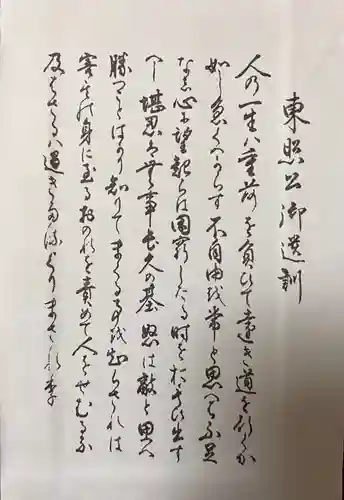 東照公御遺訓
人の一生ハ重荷を負ひて遠き道を行くか
如し急くへからす不自由を常と思へハ不足
なし心に望起らは困窮したる時を思ひ出す
へし堪忍は無事長久の基怒は敵と思へ
勝つことはかり知りてまくる事を知らされは
害其の身に至るおのれを責めて人をせむるな
及はさるハ過きたるよりまされり